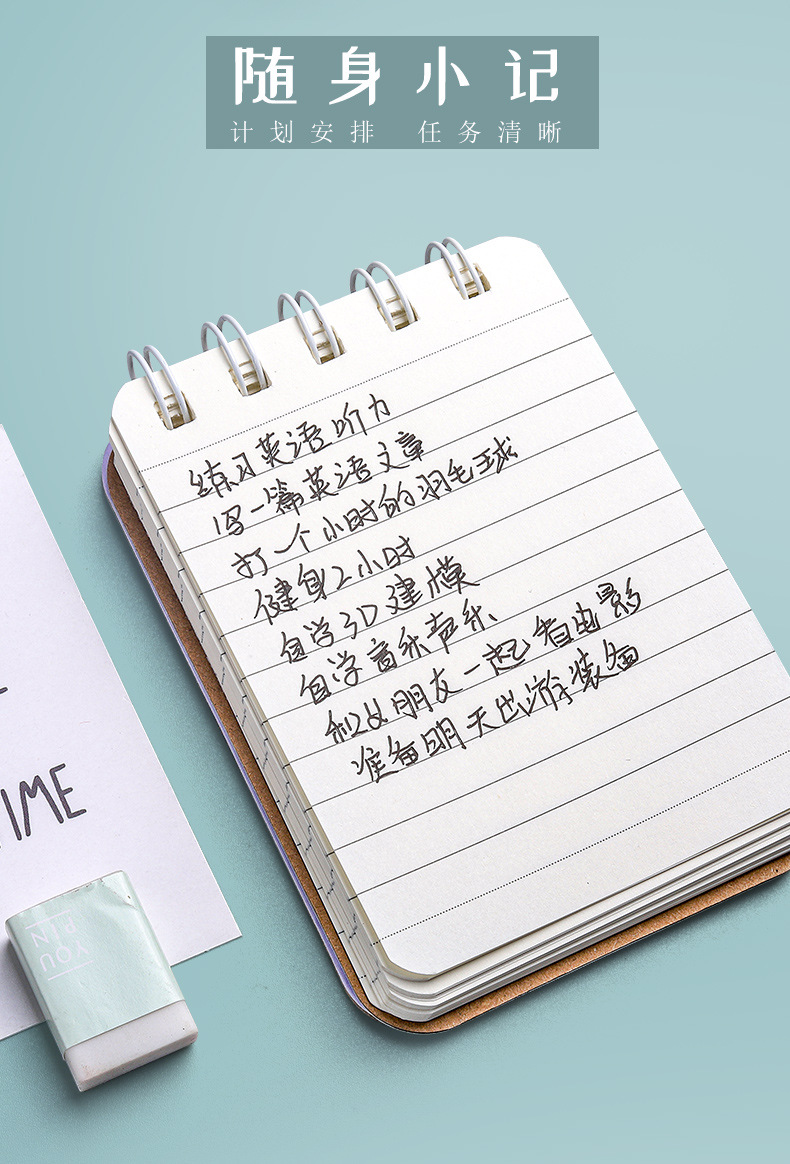 随身小记
计划安排 任务清晰
练习英语听力
写一篇英语文章
打一个小时的羽毛球
健身2小时
自学3D建模
自学音乐声乐
和以朋友一起看电影
准备明天出游装备
TIME
YOU
PIN